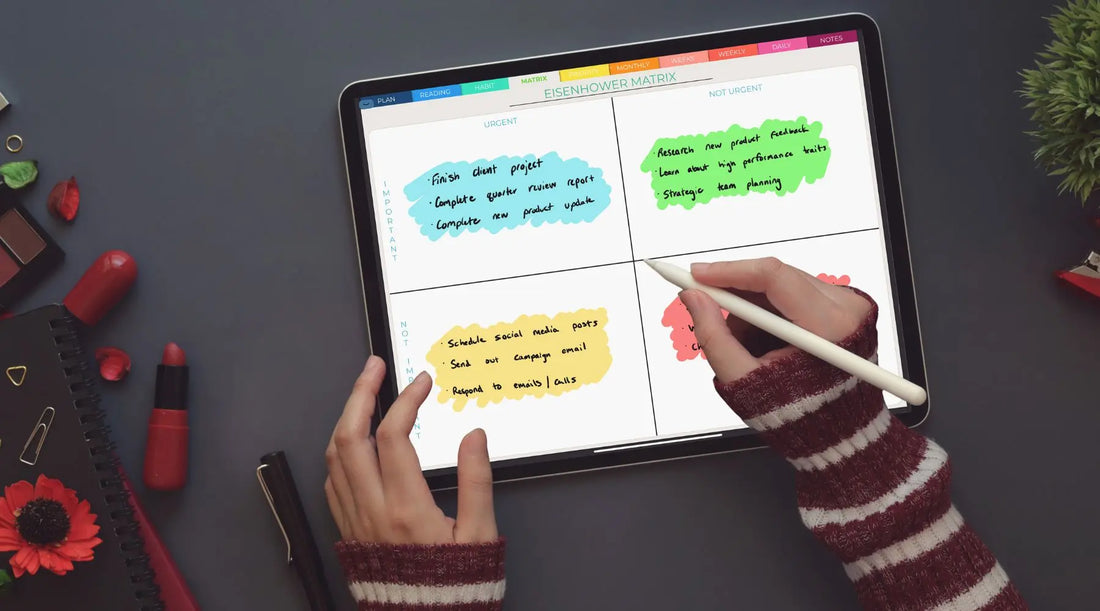 PLAN
READING
HABIT
MATRIX
PRIORITY
MONTHLY
WEEKS
WEEKLY
DAILY
NOTES
EISENHOWER MATRIX
URGENT
NOT URGENT
IMPORTANT
· Finish client project
· Complete quarter review report
· Complete new product update
· Research new product feedback
· Learn about high performance traits
· Strategic team planning
NOT
· Schedule social media posts
· Send out campaign email
· Respond to emails / calls